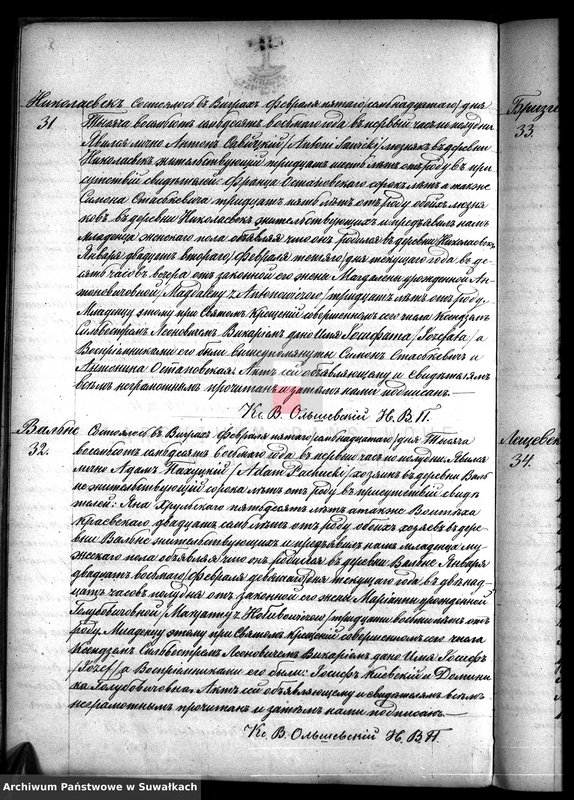 Николаевскъ
31
Состоялось въ Виграхъ Февраля пятаго /семьнадцатаго/ дня
Тысяча восемьсотъ семьдесятъ восьмаго года въ первый часъ по полудни
Явился лично Антонъ Савицкій /Antoni Sawicki/ въ деревни
Николаевскъ жительствующій тридцати шести лѣтъ отъ роду въ при
сутствіи свидѣтелей Франца Остаповскаго сорока лѣтъ а также
Симона Стаскевича тридцати пяти лѣтъ отъ роду обоихъ
въ деревни Николаевскъ жительствующихъ и предъявилъ намъ
младенца женскаго пола объявляя что онъ родился въ деревни Николаевскъ
Января двадцать втораго /Февраля третьяго/ дня текущаго года въ де-
сять часовъ вечера отъ законной его жены Магдалены урожденной Ан-
тоновичовной /Magdaleny z Antonowiczów/ тридцати лѣтъ отъ роду.
Младенцу этому при Святомъ Крещеніи совершенномъ сего числа Ксендзомъ
Сильвестромъ Леоновичемъ Викаріемъ дано имя Іозефата /Jozefata/ а
Воспріемниками его были Вышеупомянутый Симонъ Стаскевичъ и
Антонина Остаповская. Актъ сей объявляющему и свидѣтелямъ
всѣмъ неграмотнымъ прочитанъ и затѣмъ нами подписанъ.
Кс. В. Ольшевскій Н. В. П.
Вальне
32.
Состоялось въ Виграхъ Февраля пятаго /семьнадцатаго/ дня Тысяча
восемьсотъ семьдесятъ восьмаго года въ первый часъ по полудни. Явился
лично Адамъ Пахуцкій /Adam Pachucki/ хозяинъ въ деревни Валь
не жительствующій сорока лѣтъ отъ роду въ присутствіи свидѣ
телей: Яна Хрулискаго пятьдесятъ лѣтъ а также Войтѣха
Красвекаго двадцати семи лѣтъ отъ роду обоихъ хозяевъ въ дере-
вни Вальне жительствующихъ и предъявилъ намъ младенца му-
жескаго пола объявляя что онъ родился въ деревни Вальне Января
двадцать восьмаго /Февраля девятаго/ дня текущаго года въ двѣнад-
цать часовъ полудня отъ законной его жены Маріанны урожденной
Голубовичовной тридцати восьми лѣтъ отъ
роду. Младенцу этому при Святомъ Крещеніи совершенномъ сего числа
Ксендзомъ Сильвестромъ Леоновичемъ Викаріемъ дано имя Іосифъ
/Józef/ а Воспріемниками его были: Іосифъ Киевскій и Домини
ка Голубовичовна. Актъ сей объявляющему и свидѣтелямъ всѣмъ
неграмотнымъ прочитанъ и затѣмъ нами подписанъ.
Кс. В. Ольшевскій Н. В. П.
33.
34.
Archiwum Państwowe w Suwałkach